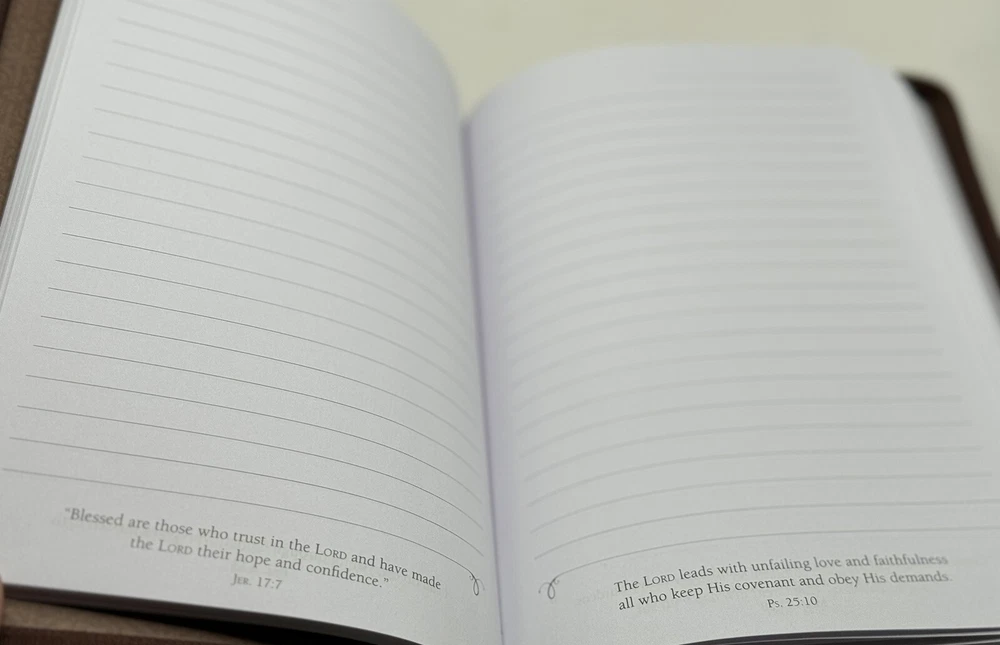 "Blessed are those who trust in the LORD and have made
the LORD their hope and confidence."
JER. 17:7
The LORD leads with unfailing love and faithfulness
all who keep His covenant and obey His demands.
Ps. 25:10